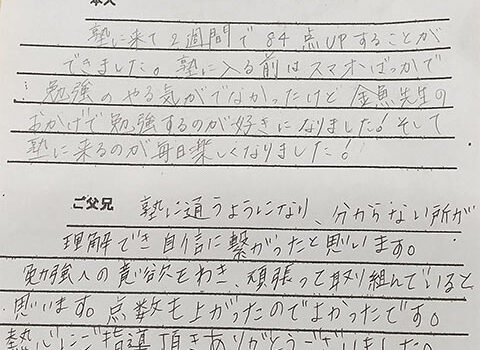 本人
塾に来て2週間で84点UPすることが
できました。塾に入る前はスマホばっかで
勉強のやる気がでなかったけど金魚先生の
おかげで勉強するのが好きになりました!そして
塾に来るのが毎日楽しくなりました!
ご父兄 塾に通うようになり、分からない所が
理解でき自信に繋がったと思います。
勉強への意欲もわき、頑張って取り組んでいると
思います。点数も上がったのでよかったです。
ご指導頂きありがとうございました。